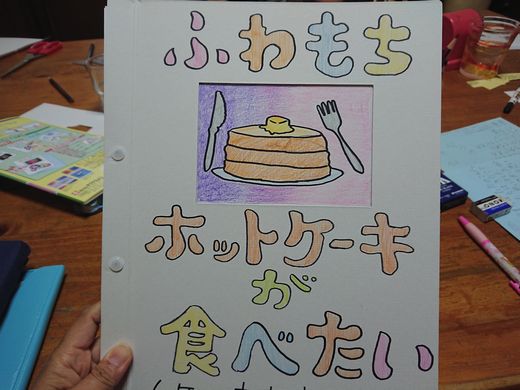 ふわもち
ホットケーキ
が
食べたい